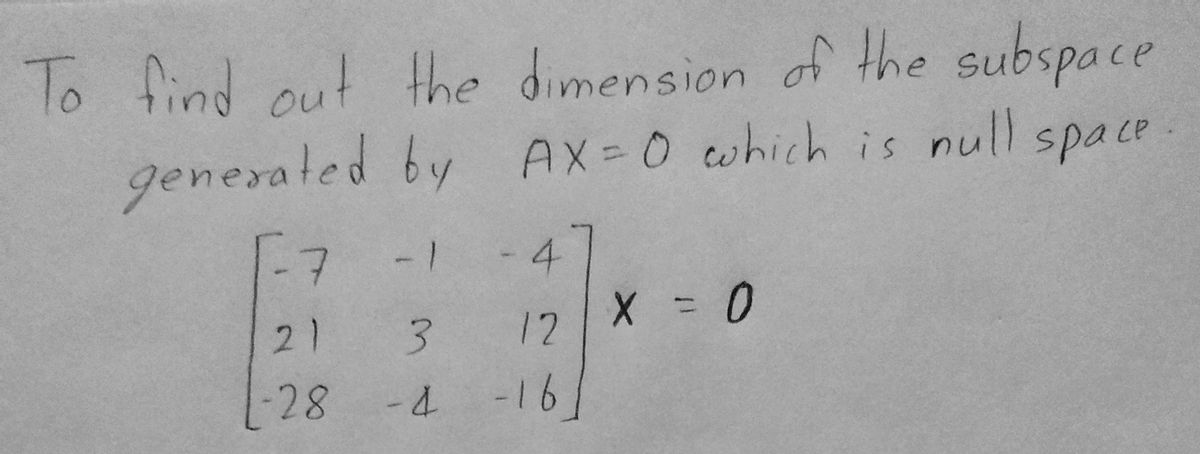 To find out the dimension of the subspace
generated by AX=0 which is null space.
[-7 -1 -4
21 3 12
-28 -4 -16] X = 0